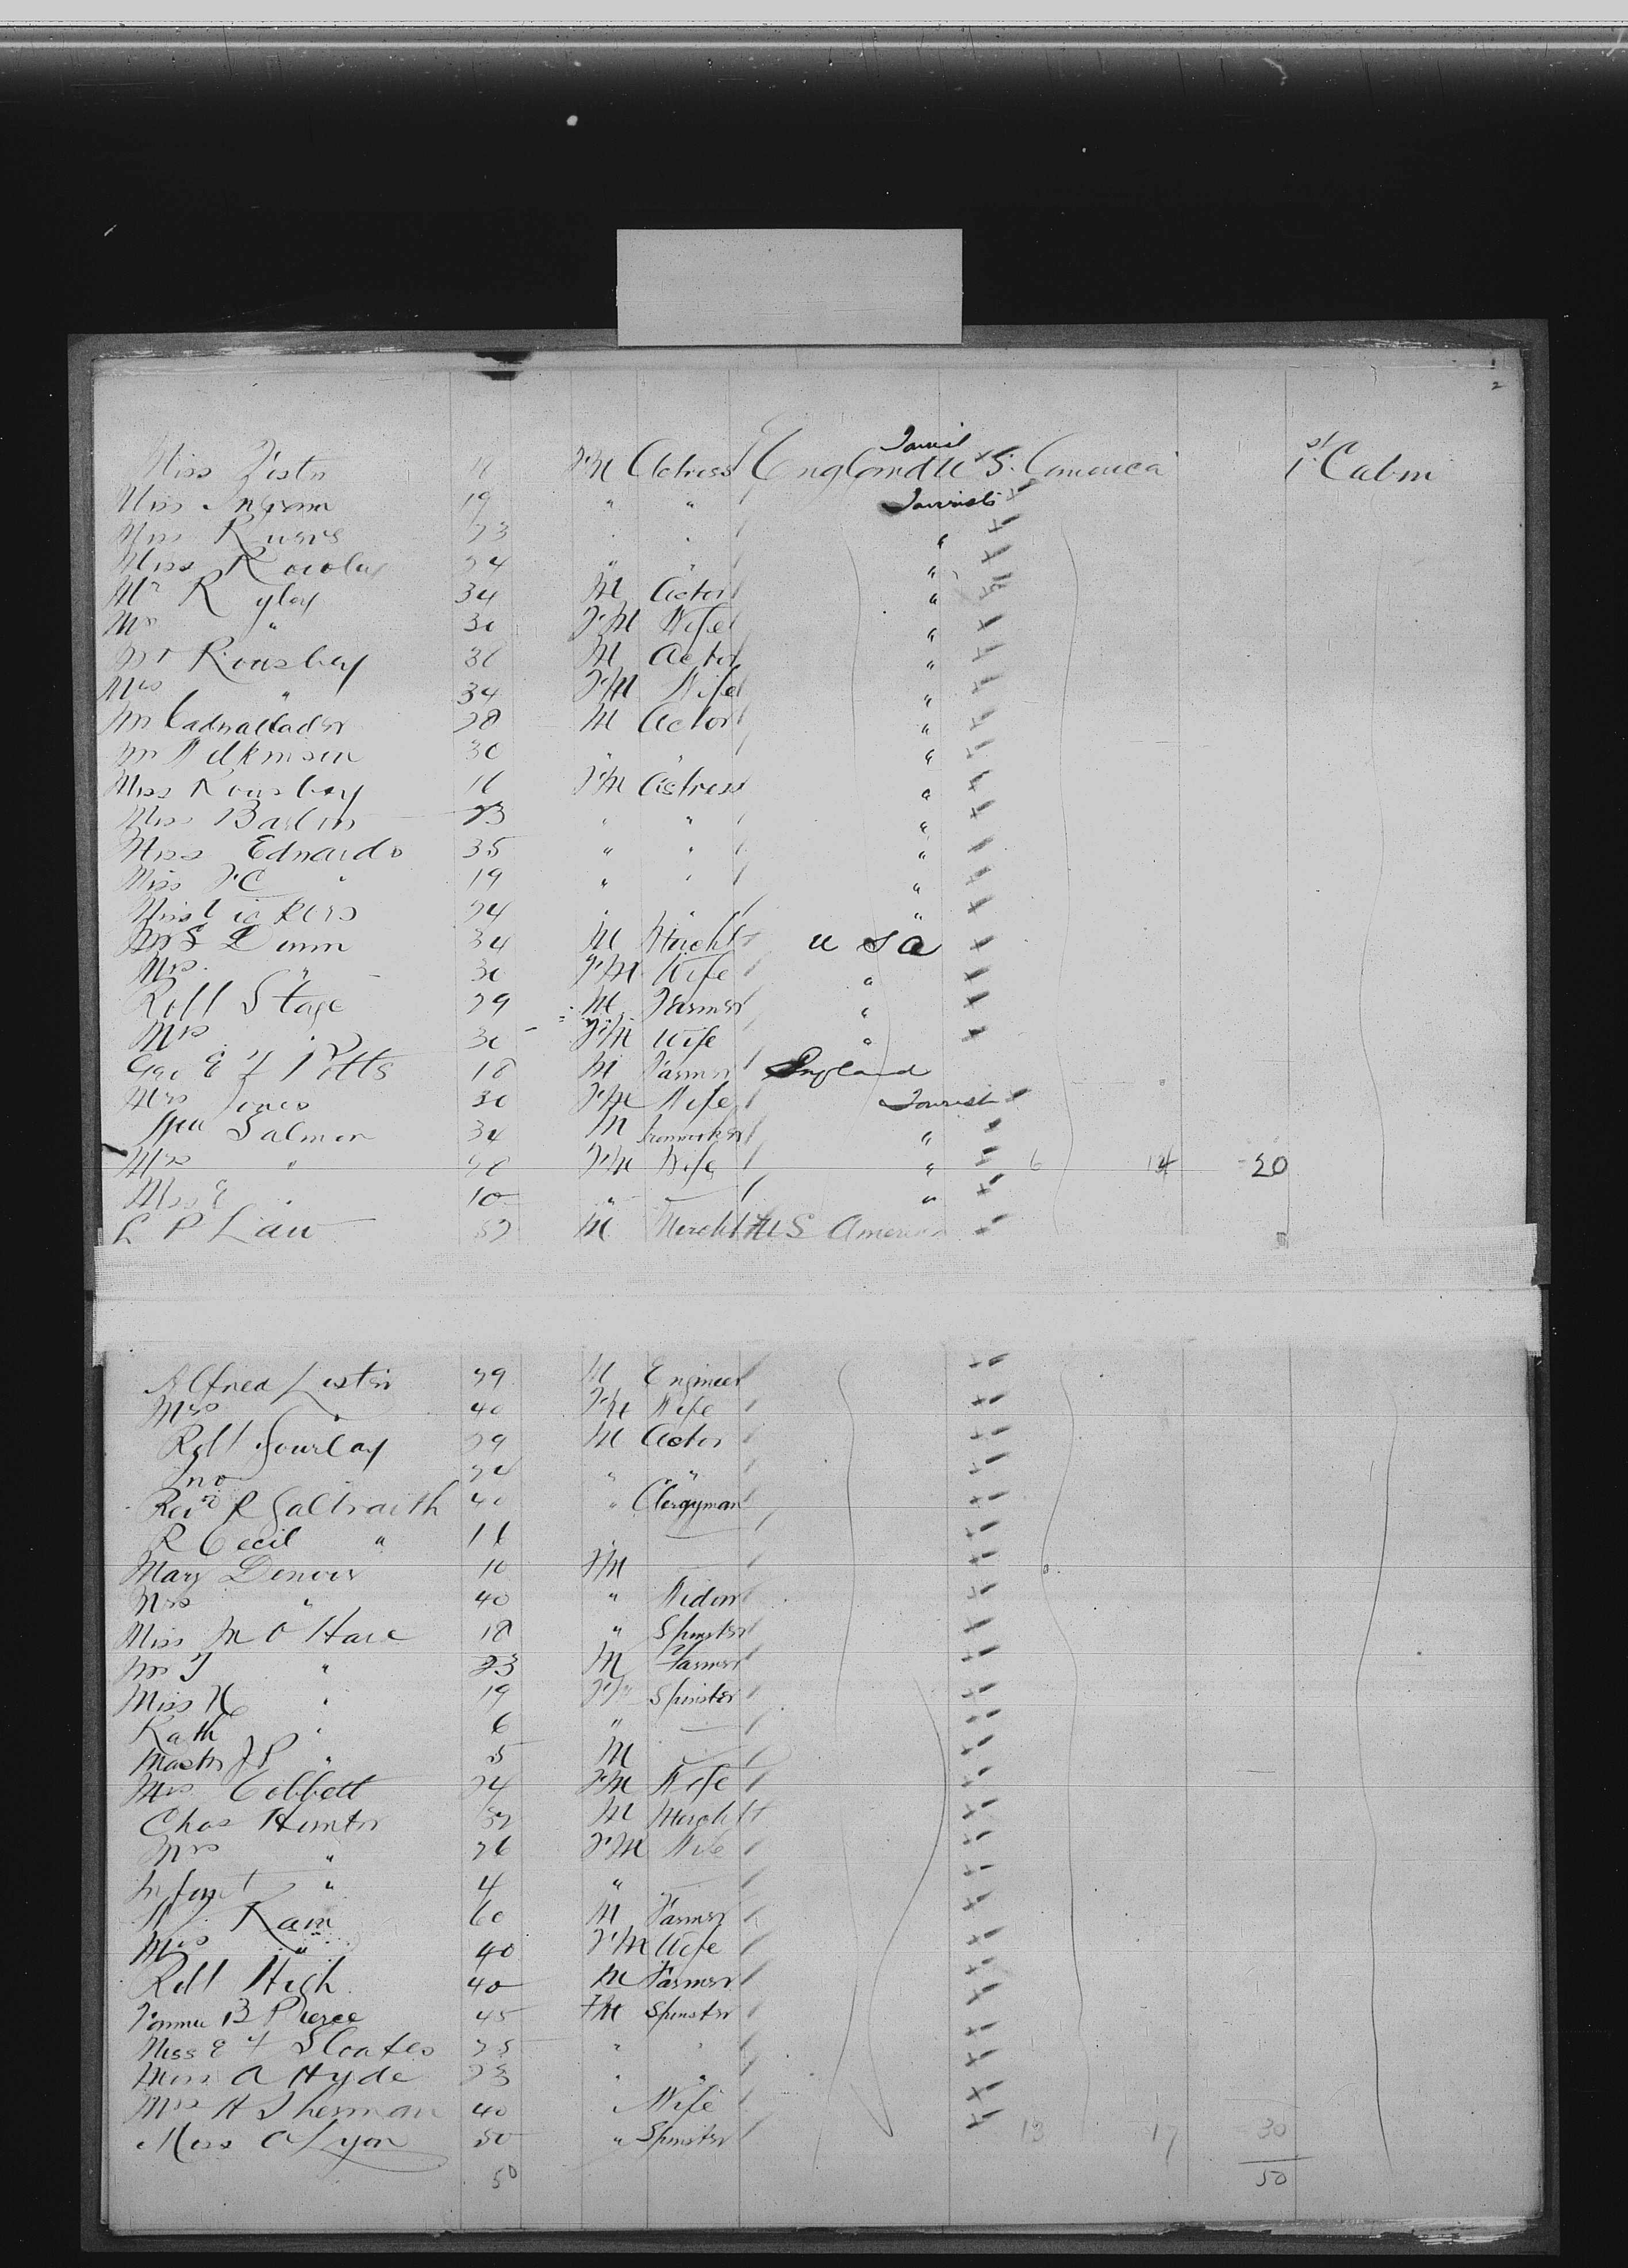 Miss 18 F'M Actress England U S. America 1st Cabin
Miss Ingram 19 " " Tourist
Miss Rivers 23 " " "
Miss 24 " " "
Mr Ryley 34 M Actor "
Mrs " 30 F'M Wife "
Mr Rousbey 36 M Actor "
Mrs " 34 F'M Wife "
Mr Cadwallader 28 M Actor "
Mr Wilkinson 30 " " "
Miss Rousbey 16 F'M Actress "
Miss 23 " " "
Miss Edwards 35 " " "
Miss F C " 19 " " "
Miss Vickers 24 " " "
Mr S Dunn 34 M Mercht U S A
Mrs " 30 F'M Wife "
Robt Stage 29 M Farmer "
Mrs " 30 F'M Wife "
Geo E F Potts 18 M Farmer England
Mrs Jones 30 F'M Wife Tourist
Wm Salmon 34 M Ironworker "
Mrs " 28 F'M Wife " 6 14 20
Miss E " 10 " "
L P Law 52 M Mercht U S America
Alfred Lister 29 M Engineer
Mrs " 40 F'M Wife
Robt Gourlay 29 M Actor
Jno " 24 " "
Revd R Galbraith 40 " Clergyman
R Cecil " 11
Mary 10 F'M
Mrs " 40 " Widow
Miss M O'Hare 18 " Spinster
Mr T " 23 M Farmer
Miss N " 19 F'M Spinster
Kath " 6 "
Master J P " 5 M
Mrs Cobbett 24 F'M Wife
Chas Hunter 32 M Mercht
Mrs " 26 F'M Wife
Infant " 4 "
Kain 60 M Farmer
Mrs " 40 F'M Wife
Robt High 40 M Farmer
B Pierce 45 F'M Spinster
Miss E F Sloates 25 " "
Miss A Hyde 23 " "
Mrs H Sherman 40 " Wife
Miss A Lyon 50 " Spinster 13 17 30
50 50